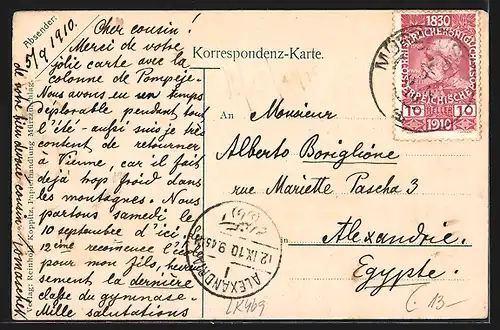 Absender:
5/9 1910.
Cher cousin!
Merci de votre
jolie carte avec la
colonne de Pompeje.
Nous avons eu un temps
déplorable pendant tout
l'été - aussi suis je très
content de retourner
à Vienne, car il fait
dejà trop froid dans
les montagnes. Nous
partons samedi le
10 septembre d'ici.
12ème recommence l'école
pour mon fils, heureu-
sement la dernière
classe du gymnase.
Mille salutations
de votre bien dévoué cousin
Korrespondenz-Karte.
An Monsieur
Alberto Boriglione
rue Mariette Pascha 3
in Alexandrie.
Egypte.
1830
10 HELLER 10
1910
ALEXANDRIA
12.IX.10
LK469
(13-
Verlag: Reinhold Koppitz, Papierhandlung Mürzzuschlag.